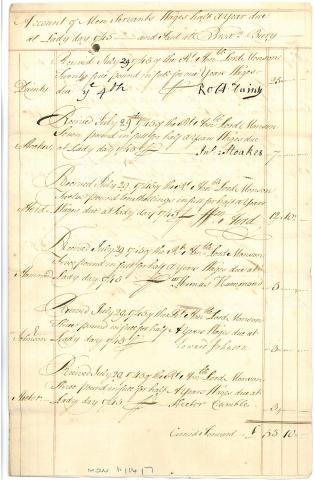 Account of Men Servants Wages half a Year due
at Lady day 1745 and paid with
Received July 29 1745 of the Rt Honble Lord Monson
Twenty five pound in full for one Years Wages 25
due ye 4th Robt
Received July 29th 1745 of the Rt Honble Lord Monson
Seven pound in full for half a Years Wages due
at Lady day 1745 Jno Stoakes 7
Received July 29 1745 of the Rt Honble Lord Monson
Twelve pound ten shillings in full for half a Years
Wages due at Lady day 1745 Wm Ford 12 10
Received July 29 1745 of the Rt Honble Lord Monson
Five pound in full for half a Years Wages due at
Hammond Lady day 1745 Thomas Hammond 5
Received July 29 1745 of the Rt Honble Lord Monson
Three pound in full for half A Years Wages due at
Johnson Lady day 1745 Edward Johnson 3
Received July 29 1745 of the Rt Honble Lord Monson
Three pound in full for half A Years Wages due at
Hector Lady day 1745 Hector Camble 3
Carried Forward £ 55 10
MON 11/14/7